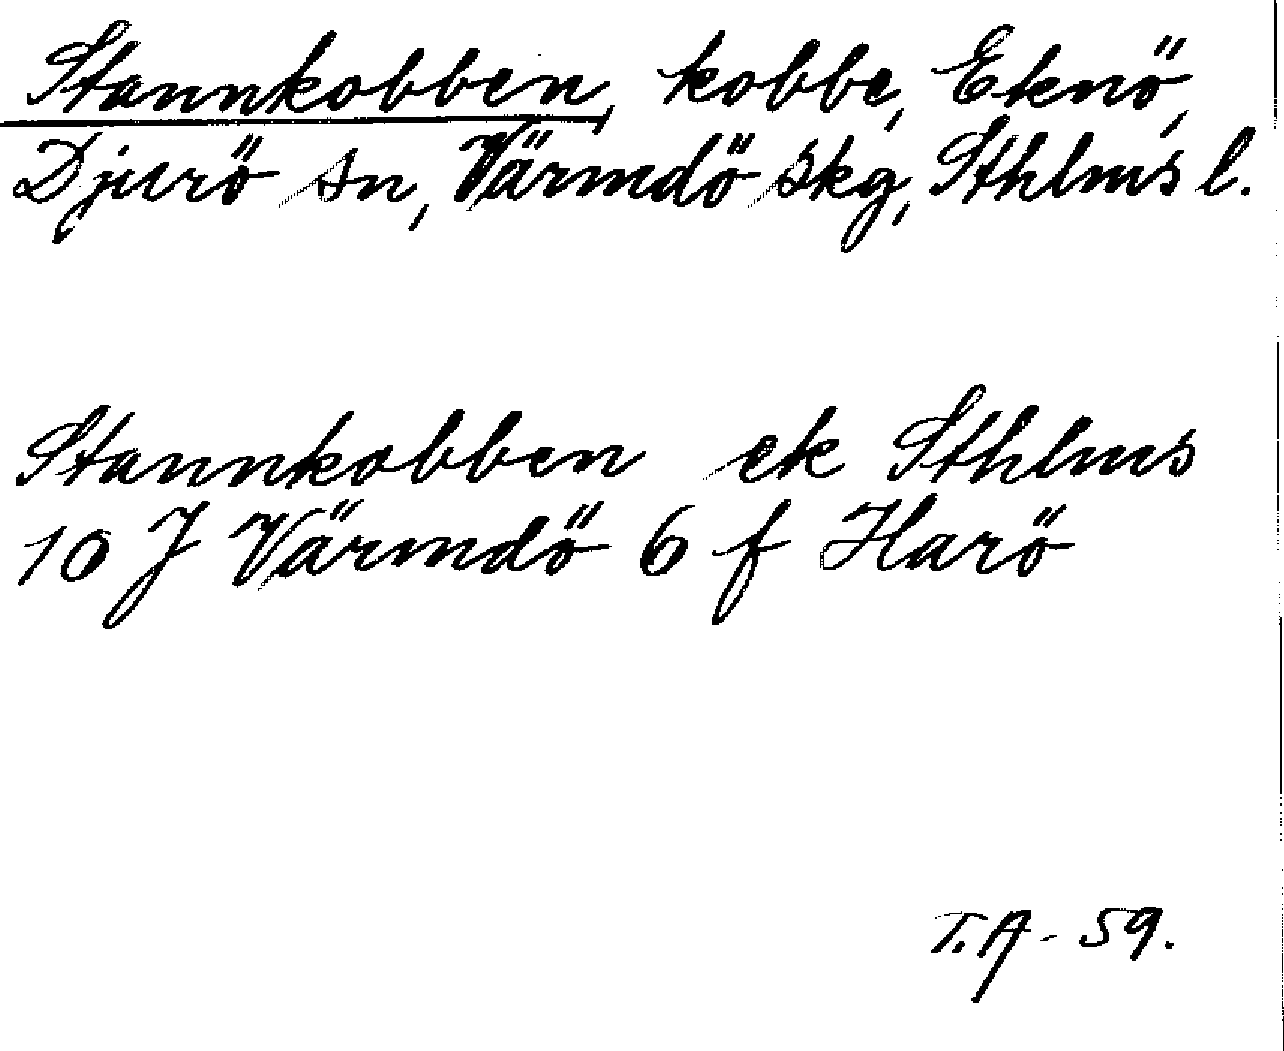 Stannkobben, kobbe, Eknö,
Djurö sn, Värmdö skg, Sthlms l.
Stannkobben ek Sthlms
10 J Värmdö 6 f Harö
T.A - 59.